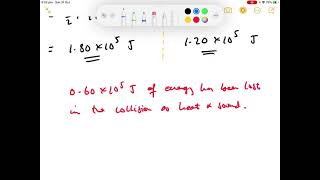 = 1.80 × 10⁵ J
1.20 × 10⁵ J
0.60 × 10⁵ J of energy has been lost
in the collision as heat & sound.